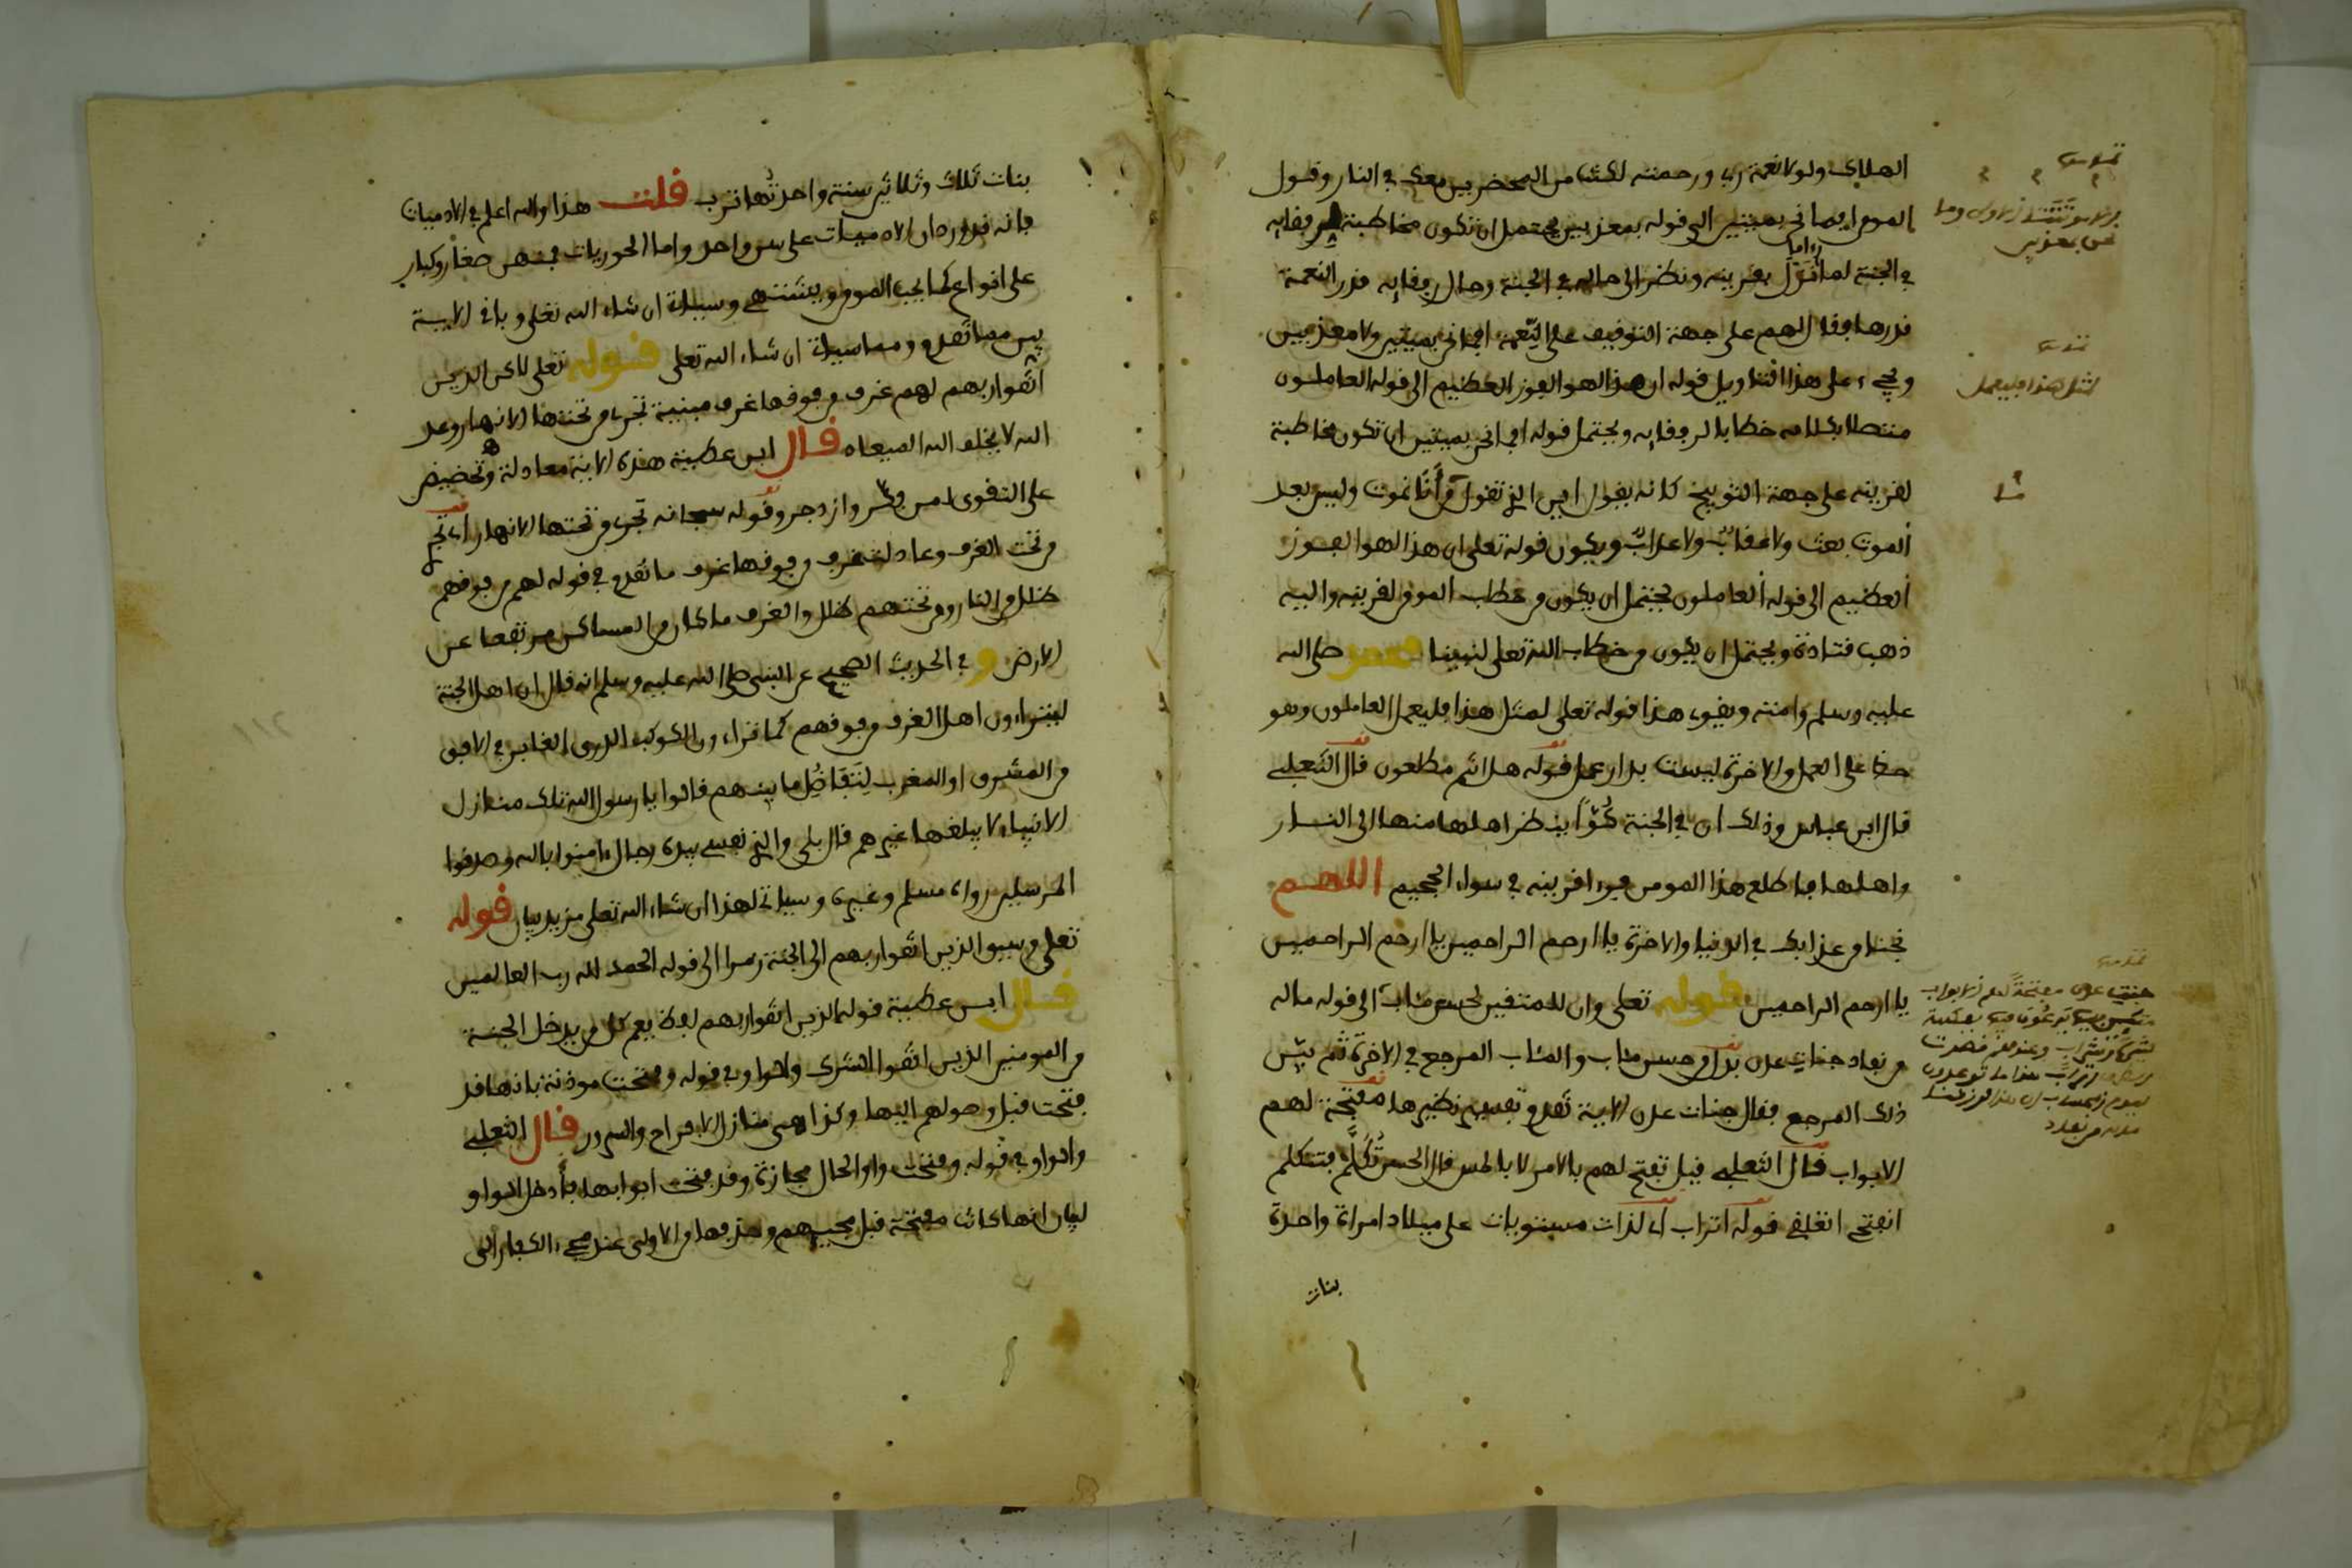 الهلاك ولولا نعمة ربي ورحمته لكنت من المحضرين معك في النار وقول
المومن افما نحن بميتين الى قوله بمعذبين يحتمل ان تكون مخاطبة لرفقايه
في الجنة لما راى ما نزل بقرينه ونظر الى حاله في الجنة وحال رفقايه قدر النعمة
قدرها فقال لهم على جهة التوقيف على النعمة افما نحن بميتين ولا معذبين
ويجيء على هذا التاويل قوله ان هذا لهو الفوز العظيم الى قوله العاملون
متصلا بكلامه خطابا لرفقايه ويحتمل قوله افما نحن بميتين ان تكون مخاطبة
لقرينه على جهة التوبيخ كانه يقول اين الذي تقول من أنا نموت وليس بعد
الموت بعث ولا عقاب ولا عذاب ويكون قوله تعلى ان هذا لهو الفوز
العظيم الى قوله العاملون يحتمل ان يكون من خطاب المومن لقرينه واليه
ذهب قتادة ويحتمل ان يكون من خطاب الله تعلى لنبينا محمد صلى الله
عليه وسلم وامته ويقوي هذا قوله تعلى لمثل هذا فليعمل العاملون وهو
حض على العمل والاخرة ليست بدار عمل قوله هل انتم مطلعون قال الثعلبي
قال ابن عباس وذلك ان في الجنة كُوًّا ينظر اهلها منها الى النار
واهلها فاطلع هذا المومن فرءا قرينه في سواء الجحيم اللهم
نجنا من عذابك في الدنيا والاخرة يا ارحم الراحمين يا ارحم الراحمين
يا ارحم الراحمين قوله تعلى وان للمتقين لحسن مئاب الى قوله ماله
من نفاد جنات عدن بدل من حسن مئاب والمئاب المرجع في الاخرة ثم بين
ذلك المرجع فقال جنات عدن الاية تقدم تفسير نظيرها مفتحة لهم
الابواب قال الثعلبي قيل تفتح لهم بالامر لا باللمس قال الحسن تُكَلَّم فتتكلم
انفتحي انغلقي قوله اتراب اي لذات مستويات على ميلاد امراة واحدة
بنات
لمثل هذا فليعمل
بنات ثلاث وثلاثين سنة واحدتها ترب قلت هذا والله اعلم في الادميات
فانه قد ورد ان الادميات على سن واحد واما الحوريات فمنهن صغار وكبار
على انواع كما يحب المومن ويشتهي وسياتي ان شاء الله تعلى وباقي الاية
بين مما تقدم ومما سياتي ان شاء الله تعلى قوله تعلى لاكن الذين
اتقوا ربهم لهم غرف من فوقها غرف مبنية تجري من تحتها الانهار وعد
الله لا يخلف الله الميعاد قال ابن عطية هذه الاية معادلة وتحضيض
على التقوى لمن فكر وازدجر وقوله سبحانه تجري من تحتها الانهار اي تجري
من تحت الغرف وعادلت غرف من فوقها غرف ما تقدم في قوله لهم من فوقهم
ظلل من النار ومن تحتهم ظلل والغرف ما كان من المساكن مرتفعا عن
الارض و في الحديث الصحيح عن النبي صلى الله عليه وسلم انه قال ان اهل الجنة
ليتراءون اهل الغرف من فوقهم كما تتراءون الكوكب الدري الغابر في الافق
من المشرق او المغرب لِتَفَاضُلِ ما بينهم قالوا يا رسول الله تلك منازل
الانبياء لا يبلغها غيرهم قال بلى والذي نفسي بيده رجال ءامنوا بالله وصدقوا
المرسلين رواه مسلم وغيره وسياتي لهذا ان شاء الله تعلى مزيد بيان قوله
تعلى وسيق الذين اتقوا ربهم الى الجنة زمرا الى قوله الحمد لله رب العالمين
قال ابن عطية قوله الذين اتقوا ربهم لفظ يعم كل من يدخل الجنة
من المومنين الذين اتقوا الشرك والواو في قوله وفتحت موذنة بانها قد
فتحت قبل وصولهم اليها وكذا هي منازل الافراح والسرور قال الثعلبي
والواو في قوله وفتحت واو الحال مجازة وقد فتحت ابوابها فأدخل الواو
لبيان انها كانت مفتحة قبل مجييهم وحذفها من الاولى عند مجيء الكفار الى